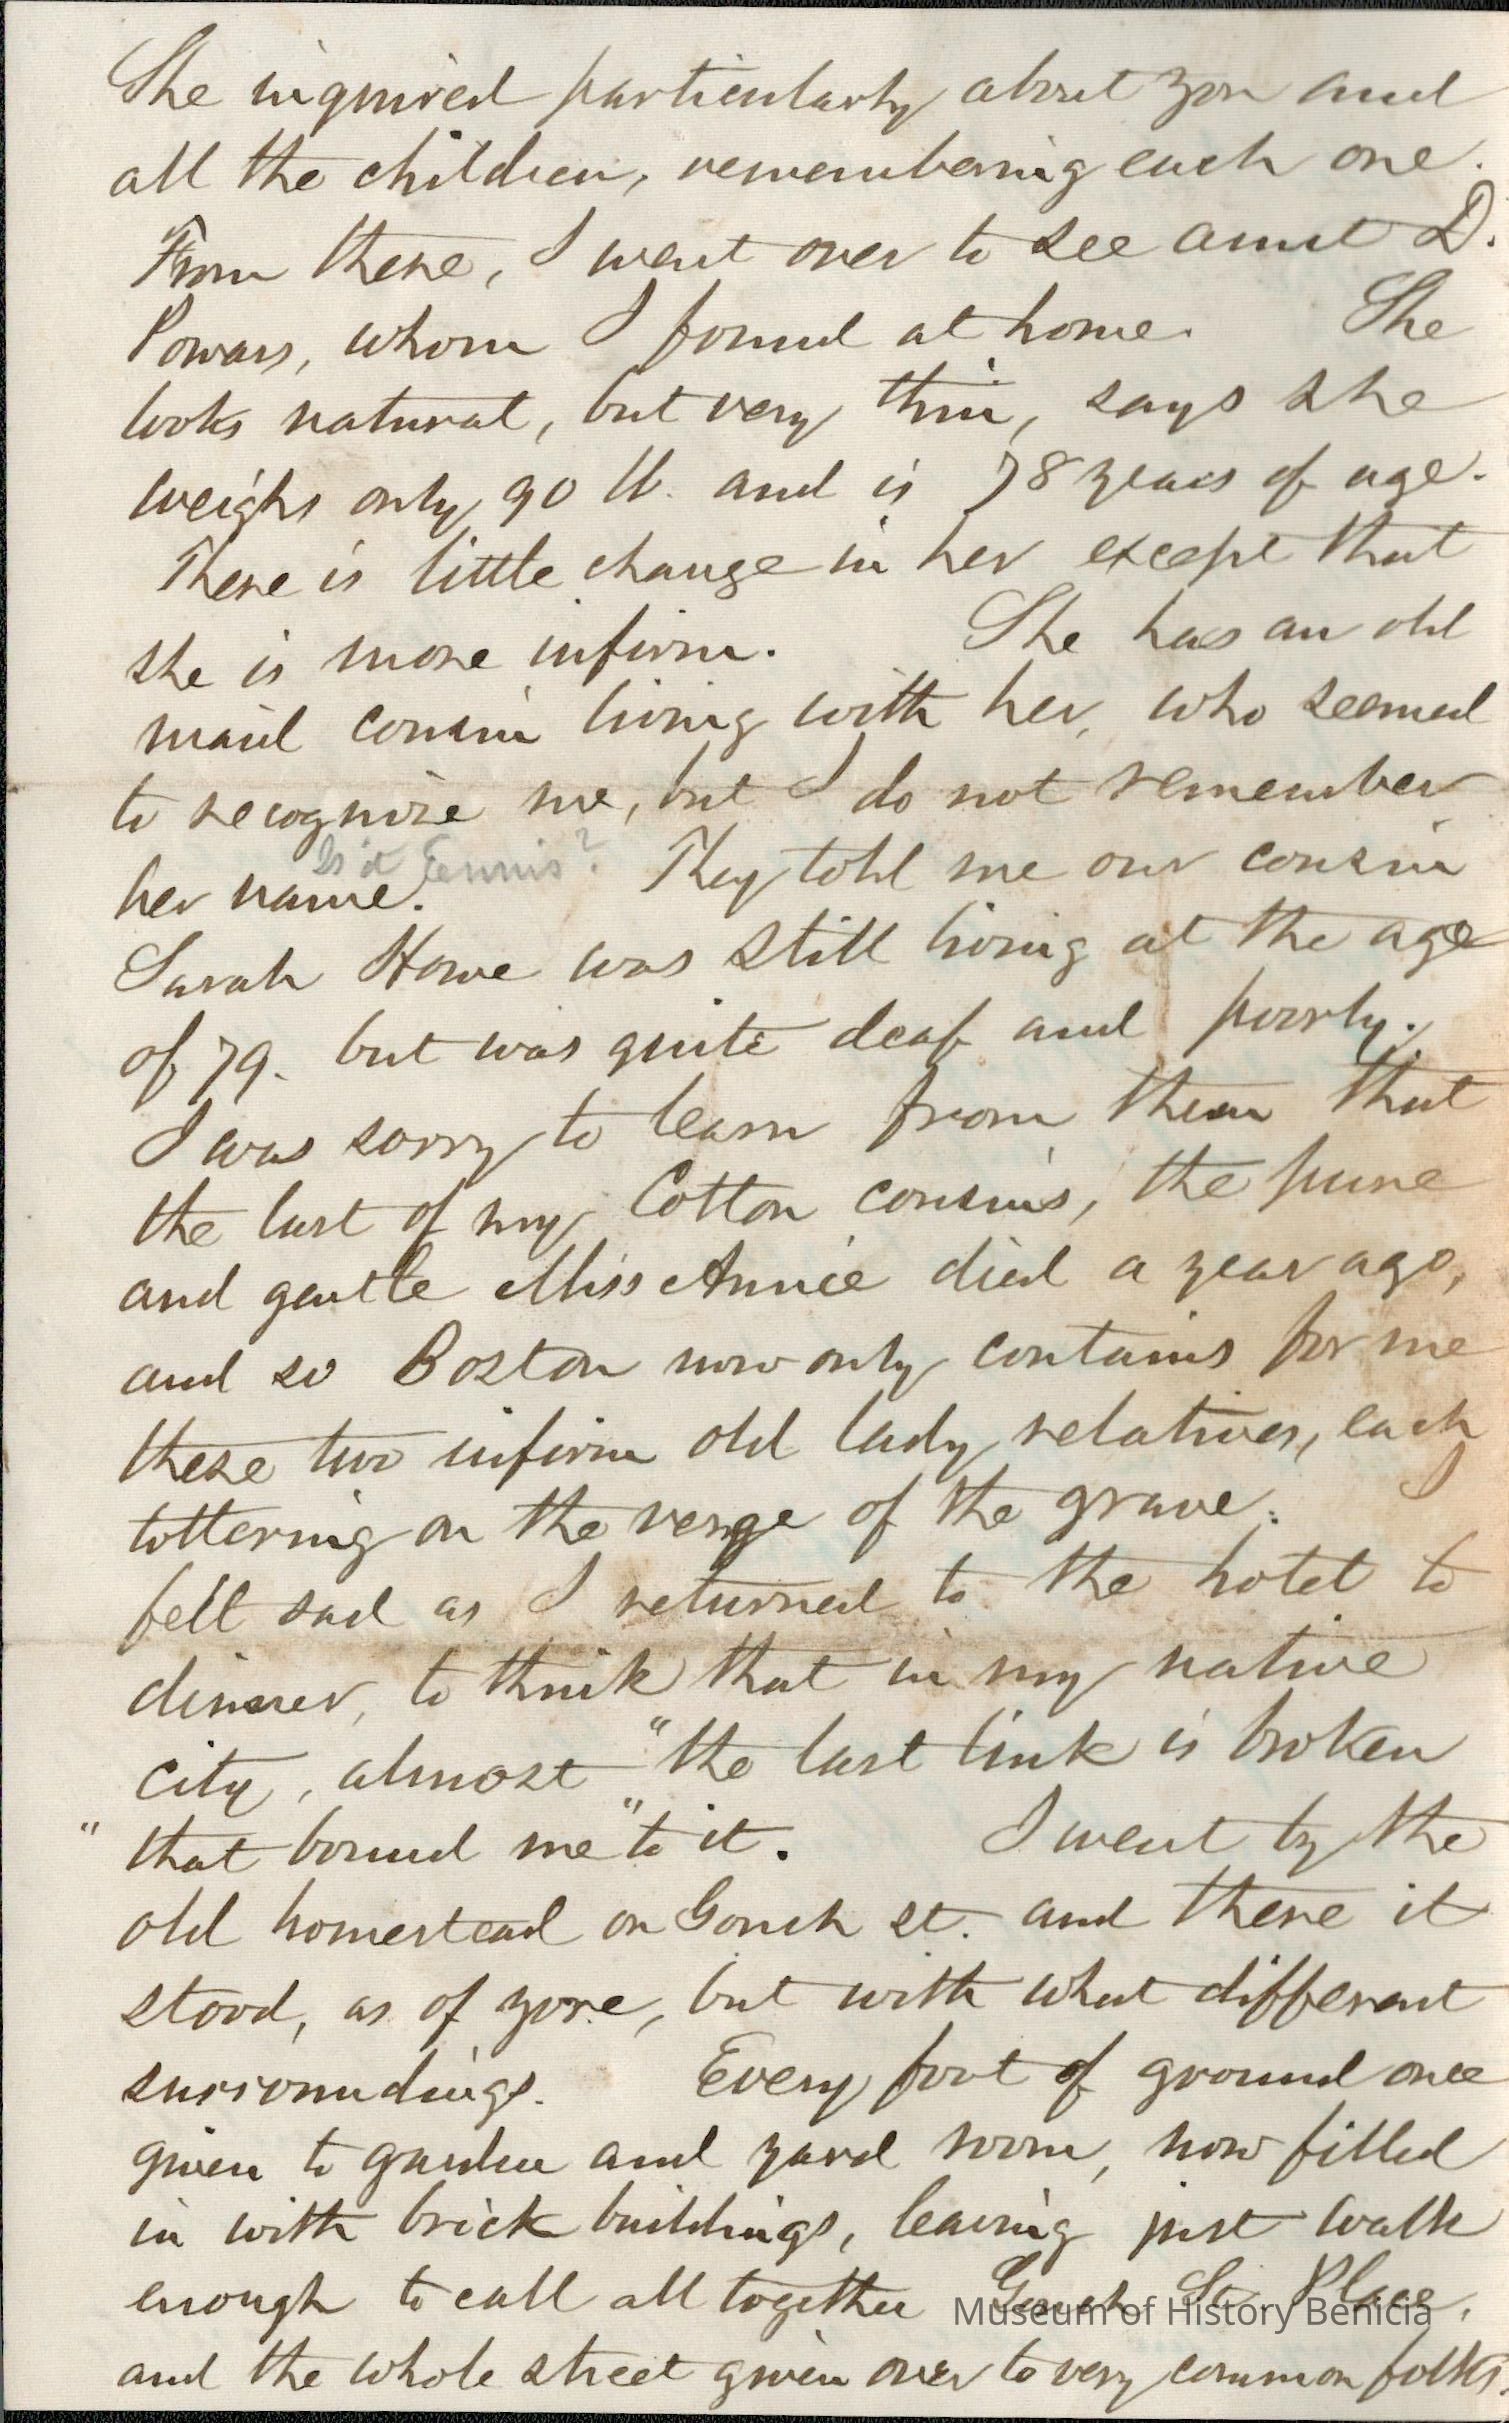 She inquired particularly about you and
all the children, remembering each one.
From there, I went over to see aunt D.
Powars, whom I found at home. She
looks natural, but very thin, says she
weighs only 90 lb. and is 78 years of age.
There is little change in her except that
she is more infirm. She has an old
maid cousin living with her, who seemed
to recognize me, but I do not remember
Is it Eunis?
her name. They told me our cousin
Sarah Howe was still living at the age
of 79. but was quite deaf and poorly.
I was sorry to learn from them that
the last of my Cotton cousins, the pure
and gentle Miss Annie died a year ago,
and so Boston now only contains for me
these two infirm old lady relatives, each
tottering on the verge of the grave. I
felt sad as I returned to the hotel to
dinner, to think that in my native
city, almost "the last link is broken
"that bound me" to it. I went by the
old homestead on Gouch st. and there it
stood, as of yore, but with what different
surroundings. Every foot of ground once
given to garden and yard room, now filled
in with brick buildings, leaving just walk
enough to call all together Gouch St. Place,
and the whole street given over to very common folks.
Museum of History Benicia